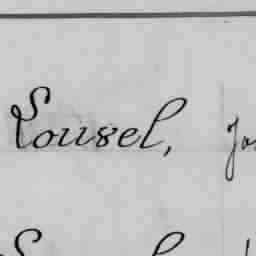 Lousel, Jos